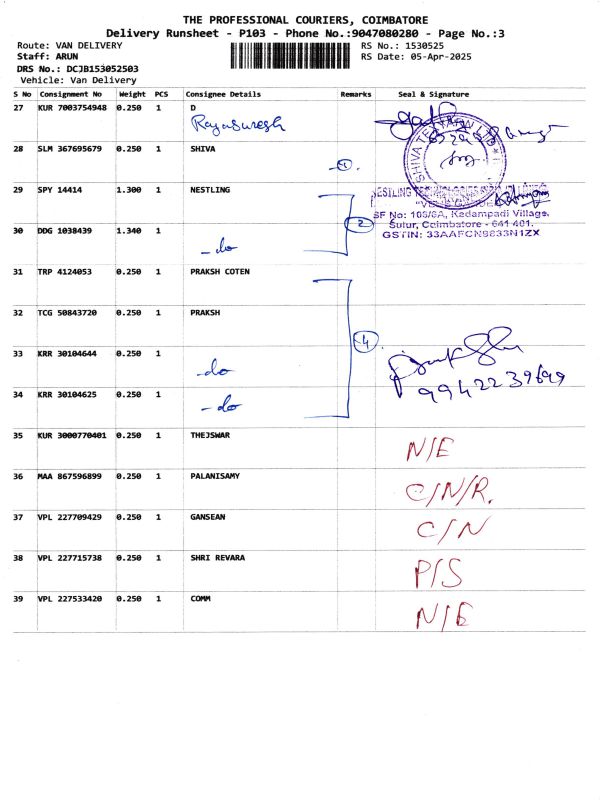 THE PROFESSIONAL COURIERS, COIMBATORE
Delivery Runsheet - P103 - Phone No.:9047080280 - Page No.:3
Route: VAN DELIVERY RS No.: 1530525
Staff: ARUN RS Date: 05-Apr-2025
DRS No.: DCJB153052503
Vehicle: Van Delivery
S No Consignment No Weight PCS Consignee Details Remarks Seal & Signature
27 KUR 7003754948 0.250 1 D
Rayasuresh
28 SLM 367695679 0.250 1 SHIVA
1
29 SPY 14414 1.300 1 NESTLING
2
SF No: 108/6A, Kadampadi Village,
Sulur, Coimbatore - 641 401.
GSTIN: 33AAFCN9833N1ZX
30 DDG 1038439 1.340 1
- do
31 TRP 4124053 0.250 1 PRAKSH COTEN
32 TCG 50843720 0.250 1 PRAKSH
4
33 KRR 30104644 0.250 1
- do
99422 39699
34 KRR 30104625 0.250 1
- do
35 KUR 3000770401 0.250 1 THEJSWAR N/E
36 MAA 867596899 0.250 1 PALANISAMY C/N/R.
37 VPL 227709429 0.250 1 GANSEAN C/N
38 VPL 227715738 0.250 1 SHRI REVARA P/S
39 VPL 227533420 0.250 1 COMM N/E